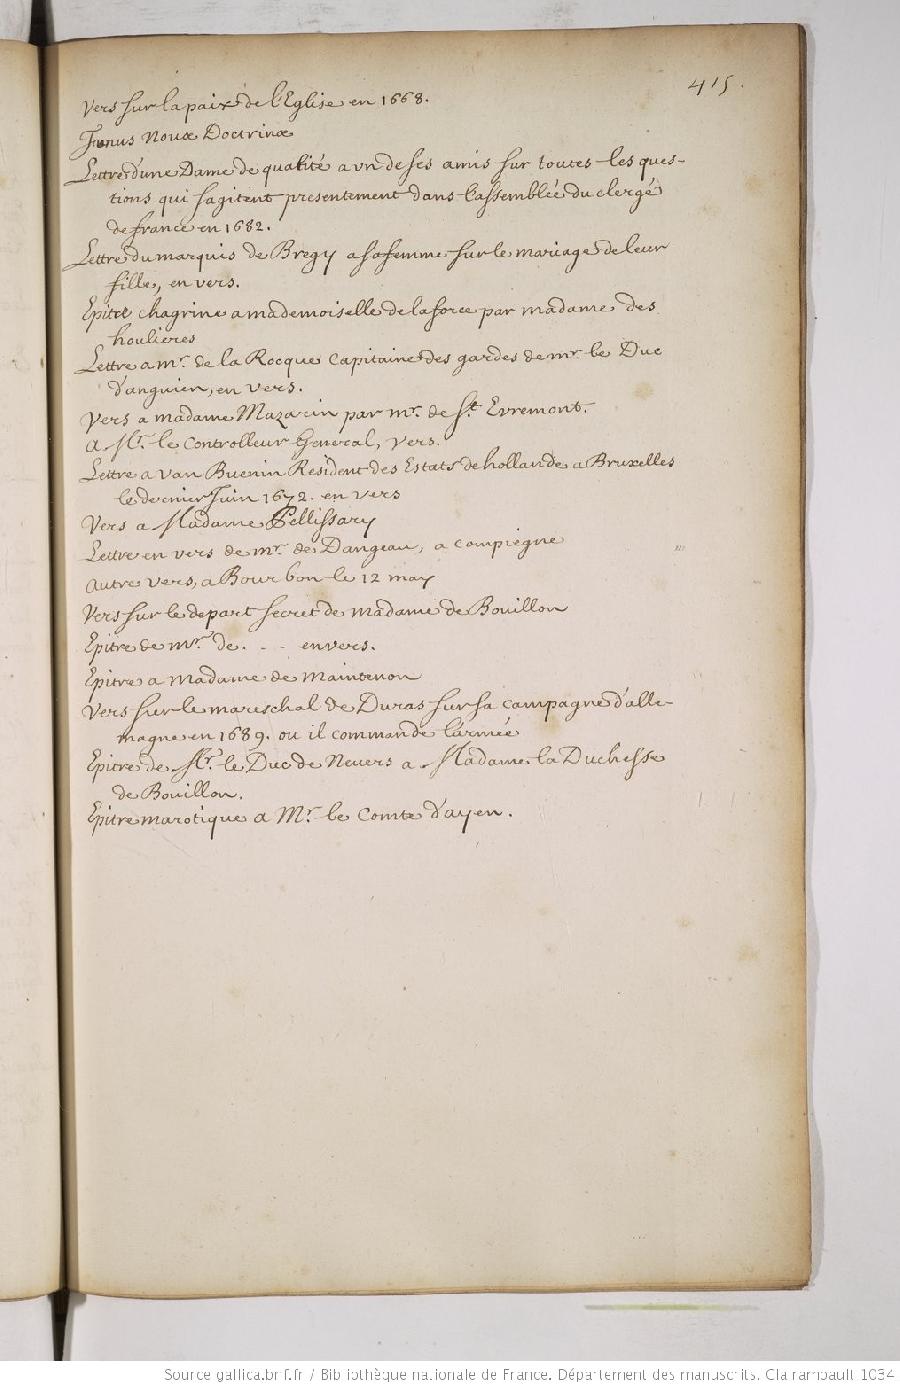 415.
Vers sur la paix de l'Eglise en 1668.
Funus Novæ Doctrinæ
Lettre d'une Dame de qualité a un de ses amis sur toutes les ques-
tions qui s'agitent presentement dans l'assemblée du clergé
de france en 1682.
Lettre du marquis de Bregy a sa femme sur le mariage de leur
fille, en vers.
Epitre chagrine a mademoiselle de la force par madame des
houlieres
Lettre a mr. de la Rocque Capitaine des gardes de mr. le Duc
d'anguien, en vers.
Vers a madame Mazarin par mr. de St. Evremont.
A Mr. le Controlleur General, vers.
Lettre a van Buenin Resident des Estats de hollande a Bruxelles
le dernier Juin 1672. en vers
Vers a Madame Pellissary
Lettre en vers de mr. de Dangeau, a compiegne
autre vers, a Bourbon le 12 may
Vers sur le depart secret de madame de Bouillon
Epitre de mr. de . . . en vers.
Epitre a madame de maintenon
Vers sur le mareschal de Duras sur sa campagne d'alle-
magne en 1689. ou il commande l'armée
Epitre de Mr. le Duc de Nevers a Madame la Duchesse
de Bouillon.
Epitre marotique a Mr. le Comte d'ayen.
Source gallica.bnf.fr / Bibliothèque nationale de France. Département des manuscrits. Clairambault 1034